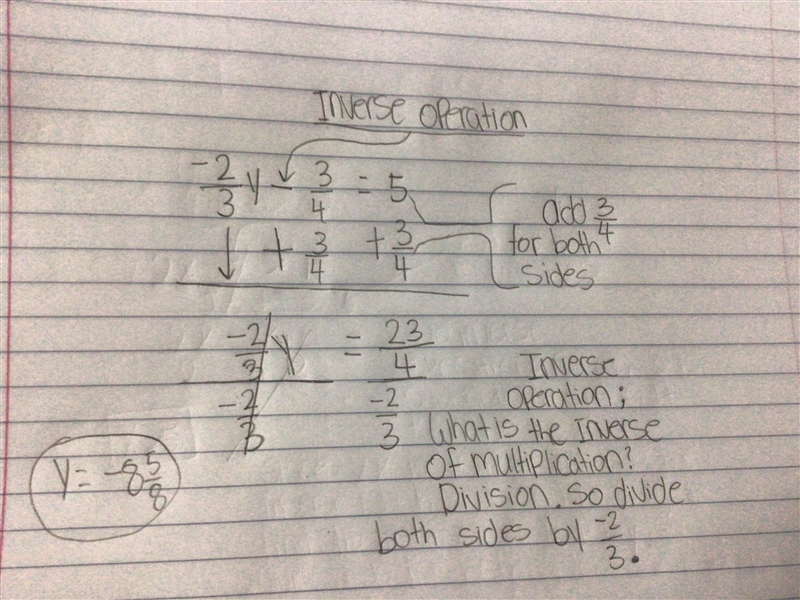 Inverse operation
-2/3 y - 3/4 = 5
+ 3/4 + 3/4
add 3/4
for both
sides
-2/3 y = 23/4
-2/3 -2/3
Inverse
operation;
What is the inverse
of multiplication?
Division. So divide
both sides by -2/3.
y = -8 5/8